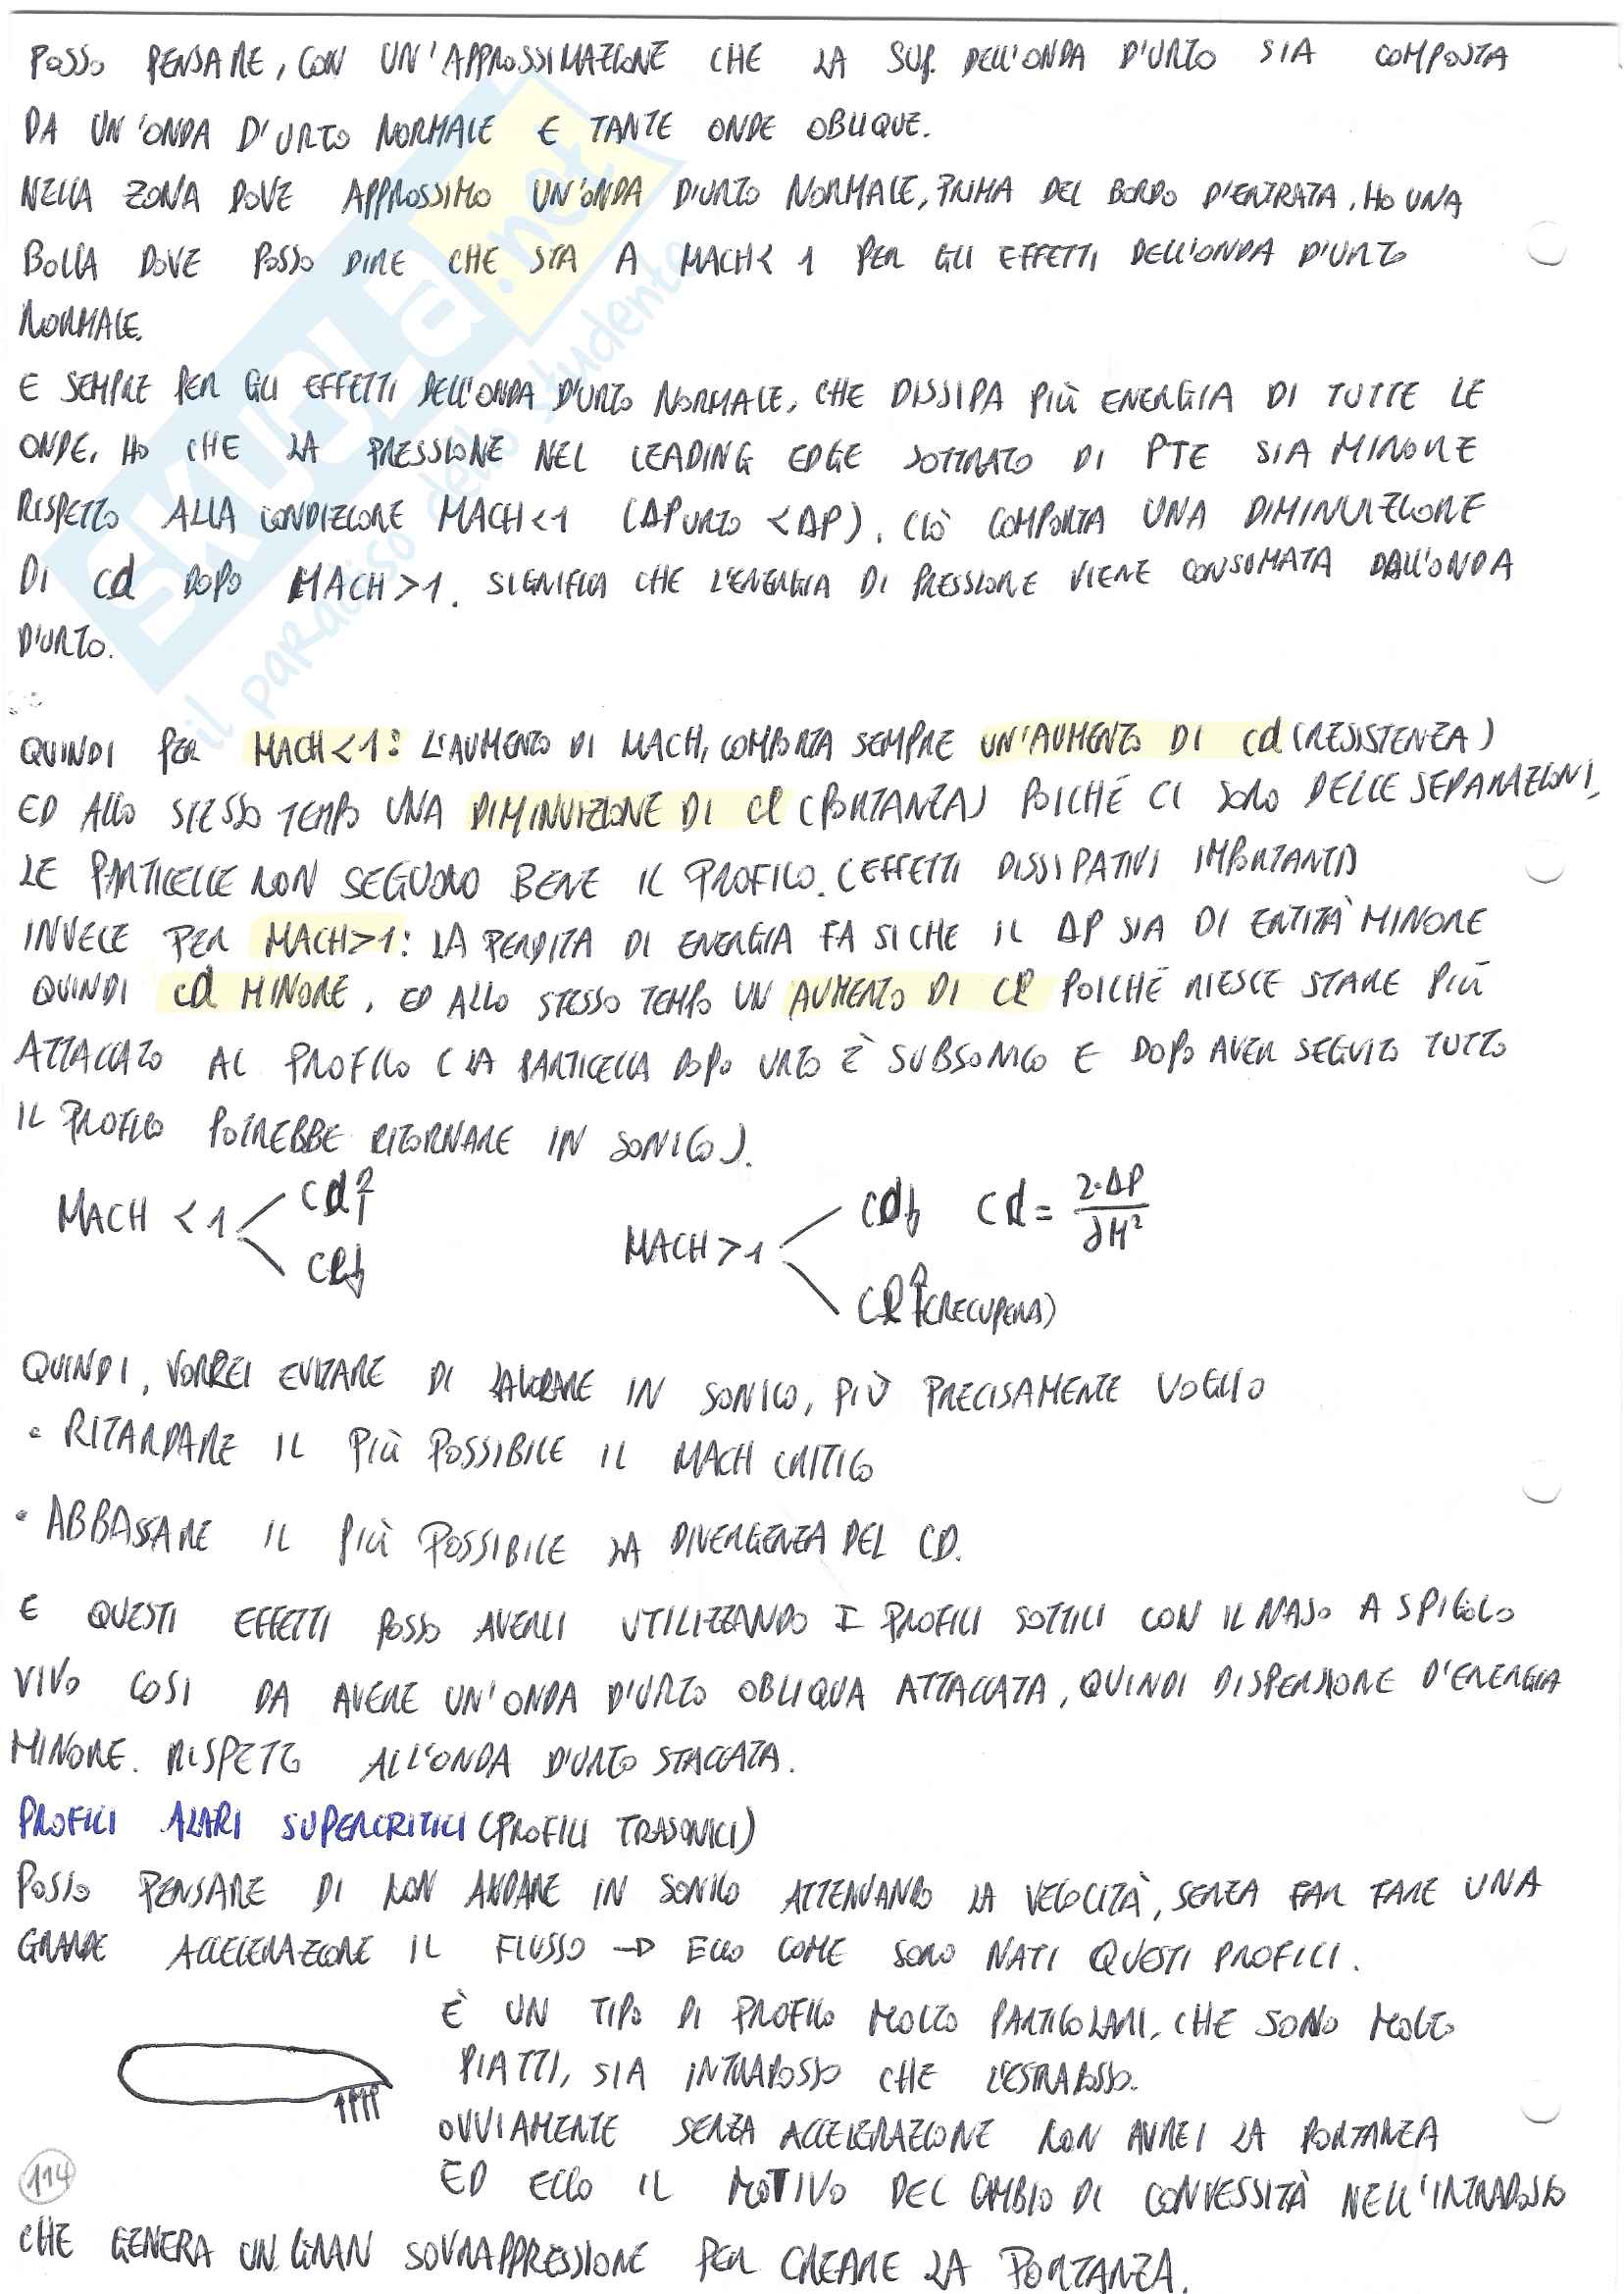 POSSO PENSARE, CON UN'APPROSSIMAZIONE CHE LA SUP. DELL'ONDA D'URTO SIA COMPOSTA
DA UN'ONDA D'URTO NORMALE E TANTE ONDE OBLIQUE.
NELLA ZONA DOVE APPROSSIMO UN'ONDA D'URTO NORMALE, PRIMA DEL BORDO D'ENTRATA, HO UNA
BOLLA DOVE POSSO DIRE CHE STA A MACH < 1 PER GLI EFFETTI DELL'ONDA D'URTO
NORMALE.
E SEMPRE PER GLI EFFETTI DELL'ONDA D'URTO NORMALE, CHE DISSIPA PIÙ ENERGIA DI TUTTE LE
ONDE, HO CHE LA PRESSIONE NEL LEADING EDGE SOTTRATO DI PTE SIA MINORE
RISPETTO ALLA CONDIZIONE MACH<1 (ΔP URTO < ΔP). CIÒ COMPORTA UNA DIMINUIZIONE
DI Cd DOPO MACH>1. SIGNIFICA CHE L'ENERGIA DI PRESSIONE VIENE CONSUMATA DALL'ONDA
D'URTO.
QUINDI PER MACH<1: L'AUMENTO DI MACH, COMPORTA SEMPRE UN'AUMENTO DI Cd (RESISTENZA)
ED ALLO STESSO TEMPO UNA DIMINUIZIONE DI Cl (PORTANZA) POICHÉ CI SONO DELLE SEPARAZIONI,
LE PARTICELLE NON SEGUONO BENE IL PROFILO. (EFFETTI DISSIPATIVI IMPORTANTI)
INVECE PER MACH>1: LA PERDITA DI ENERGIA FA SI CHE IL ΔP SIA DI ENTITÀ MINORE
QUINDI Cd MINORE, ED ALLO STESSO TEMPO UN AUMENTO DI Cl POICHÉ RIESCE STARE PIÙ
ATTACCATO AL PROFILO (LA PARTICELLA DOPO URTO È SUBSONICO E DOPO AVER SEGUITO TUTTO
IL PROFILO POTREBBE RITORNARE IN SONICO).
MACH < 1 Cd↑ Cl↓
MACH > 1 Cd↓ Cd = 2·ΔP / γM² Cl↑ (RECUPERA)
QUINDI, VORREI EVITARE DI LAVORARE IN SONICO, PIÙ PRECISAMENTE VOGLIO
• RITARDARE IL PIÙ POSSIBILE IL MACH CRITICO
• ABBASSARE IL PIÙ POSSIBILE LA DIVERGENZA DEL CD.
E QUESTI EFFETTI POSSO AVERLI UTILIZZANDO I PROFILI SOTTILI CON IL NASO A SPIGOLO
VIVO COSI DA AVERE UN'ONDA D'URTO OBLIQUA ATTACCATA, QUINDI DISPERSIONE D'ENERGIA
MINORE. RISPETTO ALL'ONDA D'URTO STACCATA.
PROFILI ALARI SUPERCRITICI (PROFILI TRASONICI)
POSSO PENSARE DI NON ANDARE IN SONICO ATTENUANDO LA VELOCITÀ, SENZA FAR FARE UNA
GRANDE ACCELERAZIONE IL FLUSSO → ECCO COME SONO NATI QUESTI PROFILI.
È UN TIPO DI PROFILO MOLTO PARTICOLARI, CHE SONO MOLTO
PIATTI, SIA INTRADOSSO CHE L'ESTRADOSSO.
OVVIAMENTE SENZA ACCELERAZIONE NON AVREI LA PORTANZA
ED ECCO IL MOTIVO DEL CAMBIO DI CONVESSITÀ NELL'INTRADOSSO
CHE GENERA UN GRAN SOVRAPPRESSIONE PER CREARE LA PORTANZA.
114
SKUOLa.net
il paradiso dello studente